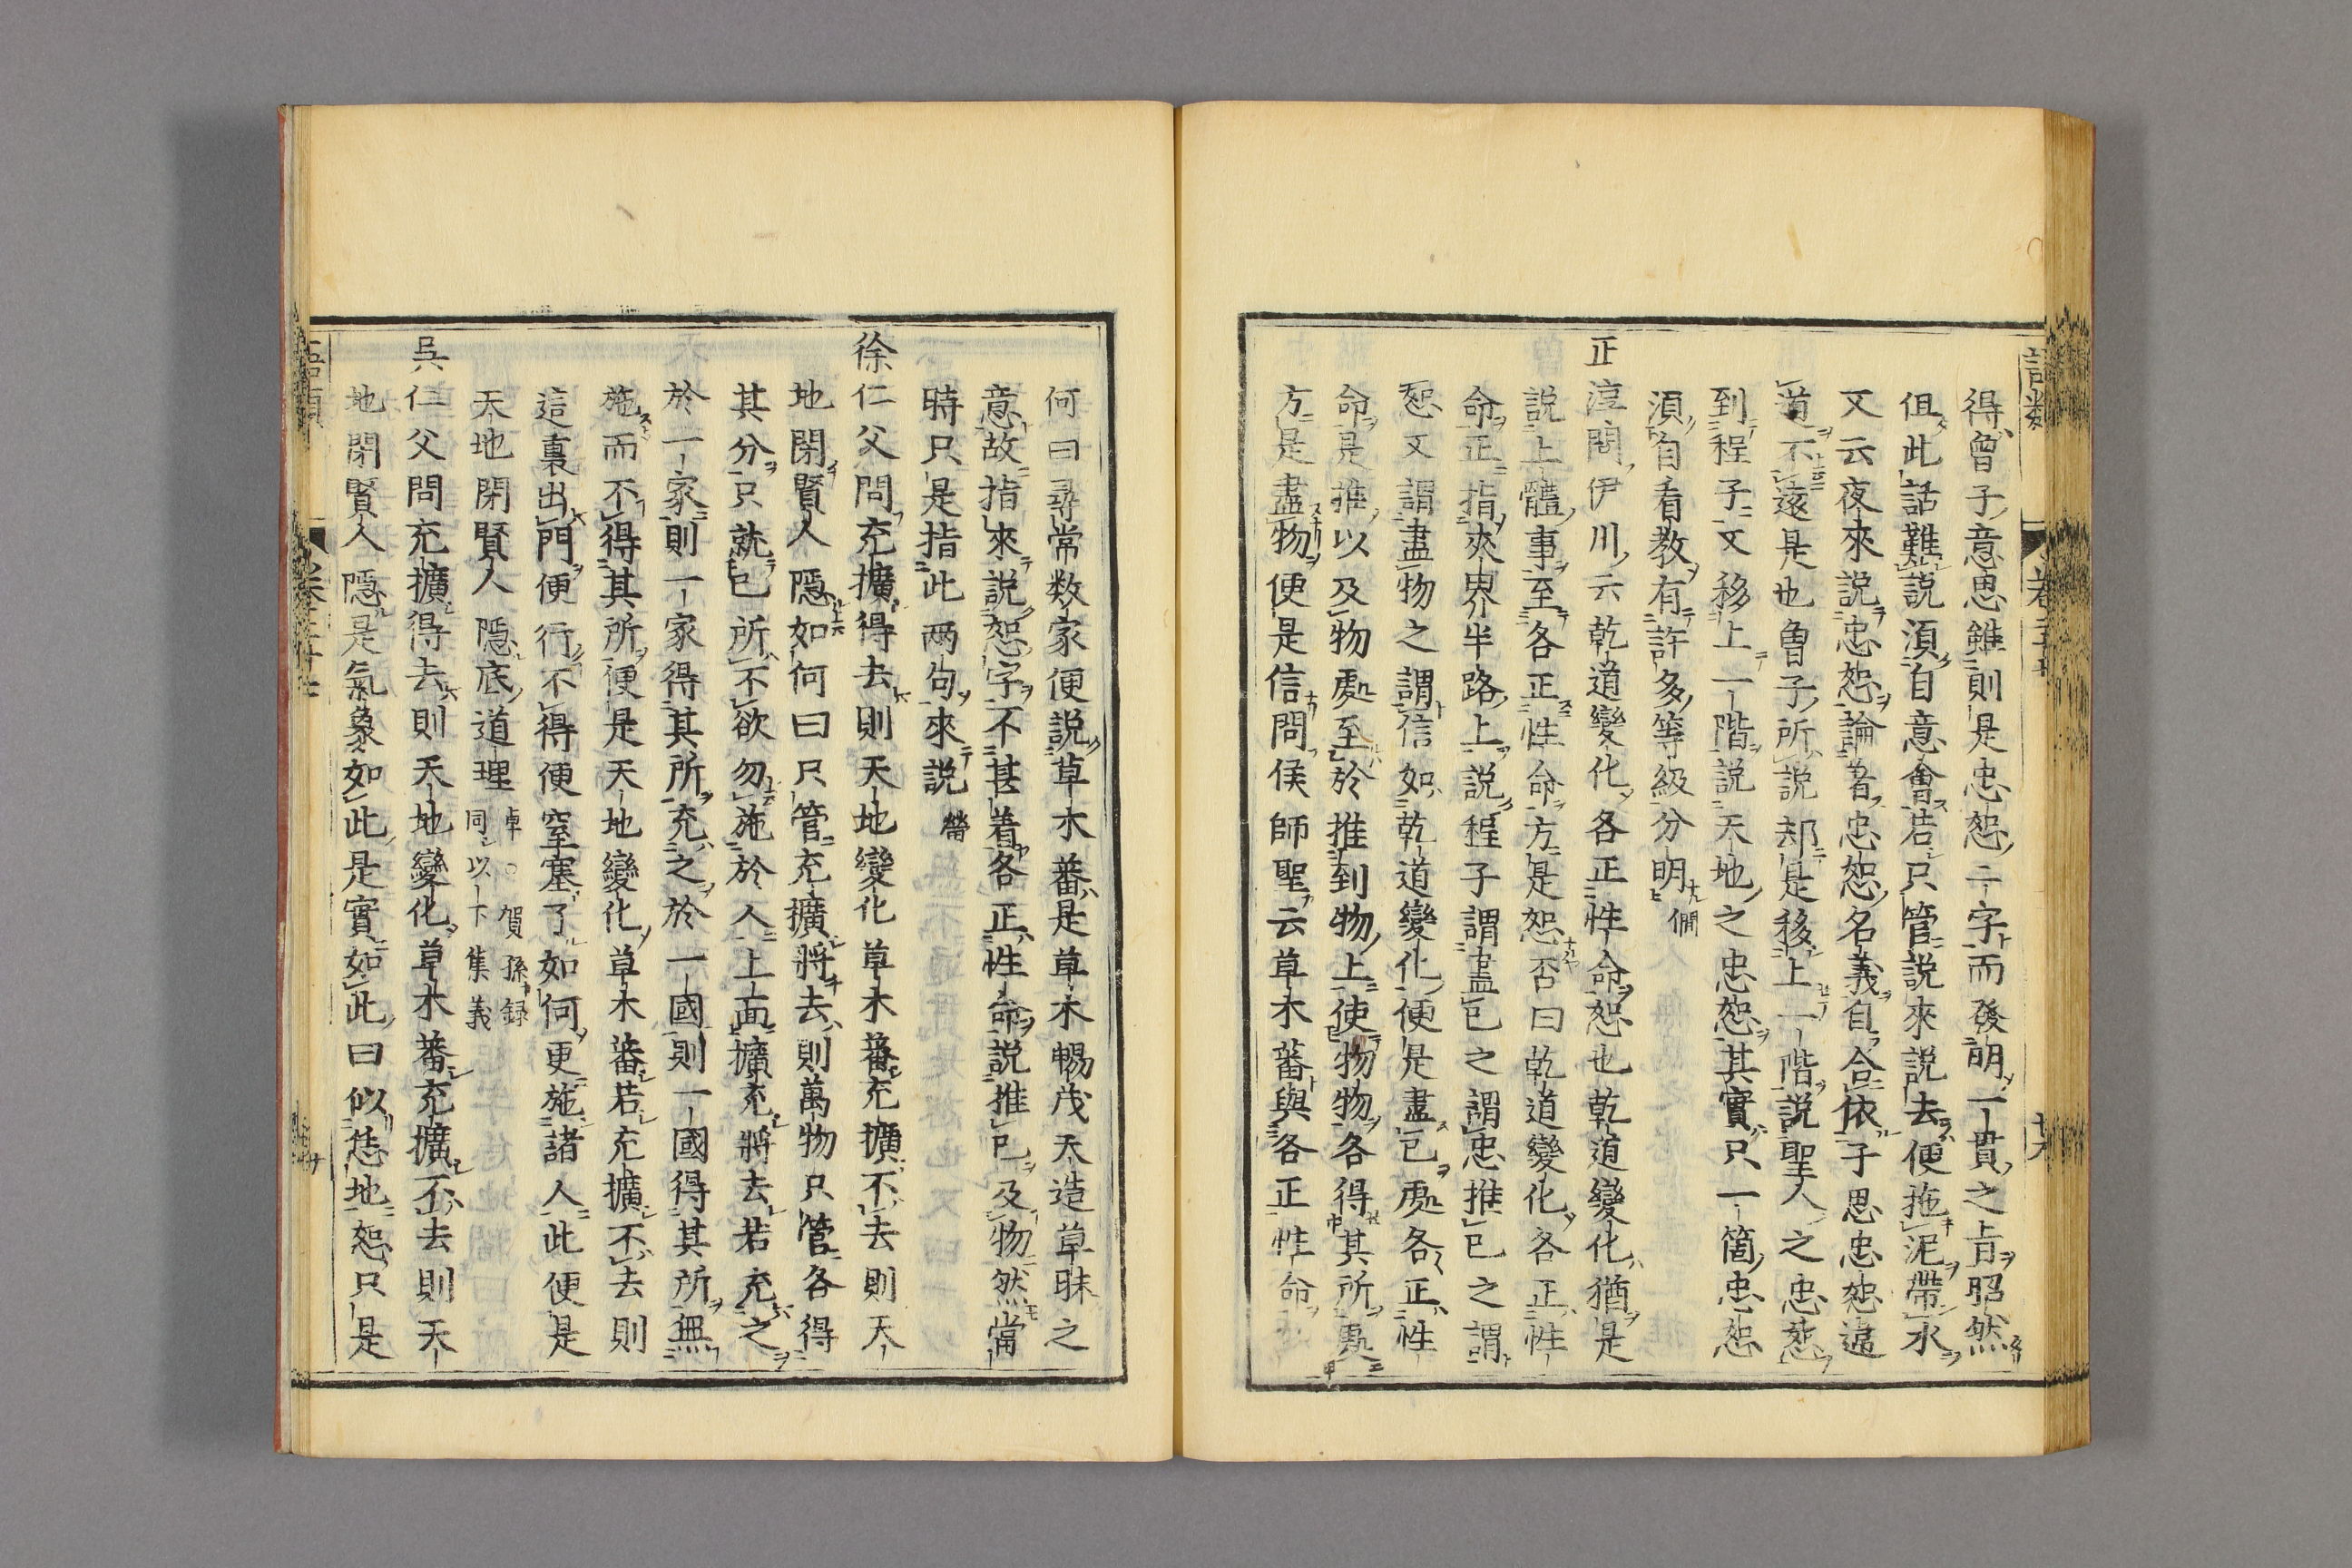 得曾子意思雖則是忠恕二字而發明一貫之旨昭然
但此話難說須自意會若只管說來說去便拖泥帶水
又云夜來說忠恕論著忠恕名義自合依子思忠恕違
道不遠是也曾子所說却是移上一階說聖人之忠恕
到程子又移上一階說天地之忠恕其實只一箇忠恕
須自看教有許多等級分明僩
正淳問伊川云乾道變化各正性命恕也乾道變化猶是
說上體事至各正性命方是恕否曰乾道變化各正性
命正指來界半路上說程子謂盡己之謂忠推己之謂
恕又謂盡物之謂信如乾道變化便是盡己處各正性
命是推以及物處至於推到物上使物物各得其所處
方是盡物便是信問侯師聖云草木蕃與各正性命
何曰尋常數家便說草木蕃是草木暢茂天造草昧之
意故指來說恕字不甚着各正性命說推己及物然當
時只是指此兩句來說㽦
徐仁父問充擴得去則天地變化草木蕃充擴不去則天
地閉賢人隱如何曰只管充擴將去則萬物只管各得
其分只就己所不欲勿施於人上面擴充將去若充之
於一家則一家得其所充之於一國則一國得其所無
施而不得其所便是天地變化草木蕃若充擴不去則
這裏出門便行不得便窒塞了如何更施諸人此便是
天地閉賢人隱底道理卓○賀孫録同以下集義
吳仁父問充擴得去則天地變化草木蕃充擴不去則天
地閉賢人隱是氣象如此是實如此曰似恁地恕只是